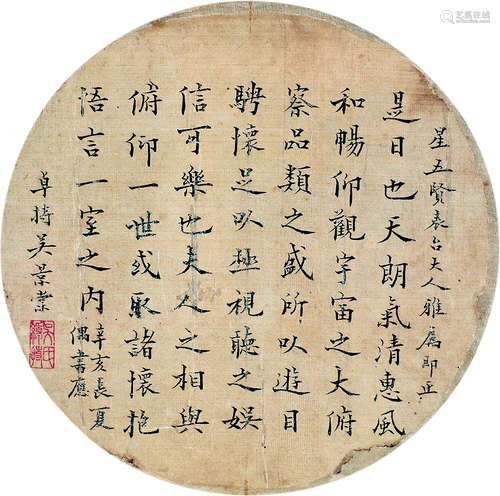 星五賢表台大人雅屬即正
是日也天朗氣清惠風
和暢仰觀宇宙之大俯
察品類之盛所以遊目
騁懷足以極視聽之娛
信可樂也夫人之相與
俯仰一世或取諸懷抱
悟言一室之内
辛亥長夏
偶書應
卓持吳景